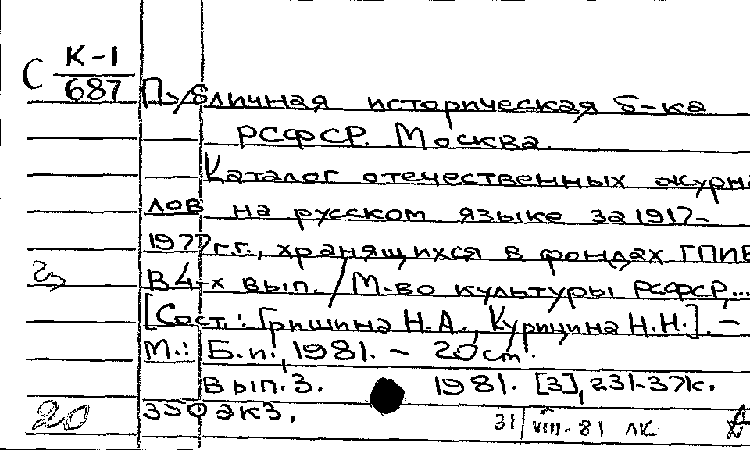 С К-1
687
Публичная историческая б-ка
РСФСР. Москва.
Каталог отечественных журна
лов на русском языке за 1917-
1977 г.г., хранящихся в фондах ГПИБ
В 4-х вып. / М-во культуры РСФСР,...
[Сост.: Гришина Н.А., Курицина Н.Н.]. –
М.: Б.и., 1981. – 20 см.
Вып. 3. 1981. [3], 231-37к.
350 экз.
20
31/VIII-81 ЛК